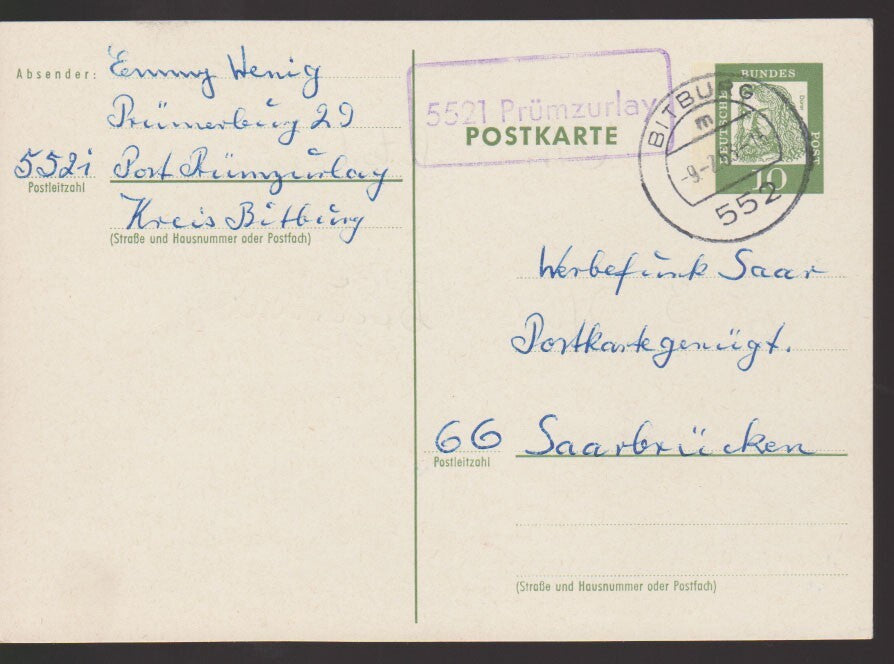 Absender: Emmy Wenig
Prümerburg 29
5521 Post Prümzurlay
Postleitzahl
Kreis Bitburg
(Straße und Hausnummer oder Postfach)
5521 Prümzurlay
POSTKARTE
BITBURG
m
552
DEUTSCHE
BUNDES
POST
Dürer
10
Werbefunk Saar
Postkartegenügt.
66 Saarbrücken
Postleitzahl
(Straße und Hausnummer oder Postfach)